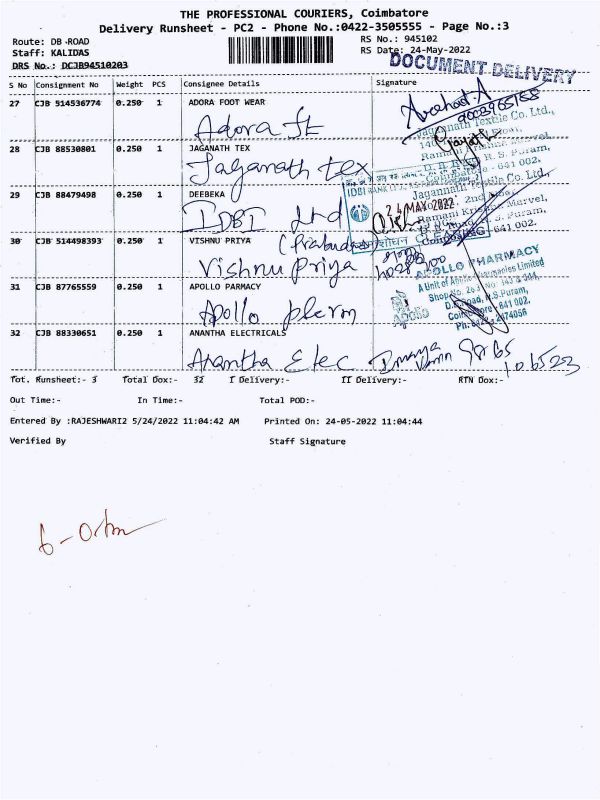 THE PROFESSIONAL COURIERS, Coimbatore
Delivery Runsheet - PC2 - Phone No.:0422-3505555 - Page No.:3
Route: DB-ROAD
RS No.: 945102
Staff: KALIDAS
RS Date: 24-May-2022
DRS No.: DCJB94510203
DOCUMENT DELIVERY
S No Consignment No Weight PCS Consignee Details Signature
27 CJB 514536774 0.250 1 ADORA FOOT WEAR
Adora
28 CJB 88530801 0.250 1 JAGANATH TEX
Jaganath tex
29 CJB 88479498 0.250 1 DEEBEKA
IDBI Ltd
30 CJB 514498393 0.250 1 VISHNU PRIYA
Vishnu Priya
31 CJB 87765559 0.250 1 APOLLO PARMACY
Apollo
32 CJB 88330651 0.250 1 ANANTHA ELECTRICALS
Anantha Elec
98165
106523
Jagannath Textile Co. Ltd.,
R.S. Puram,
Coimbatore - 641 002.
IDBI BANK
24 MAY 2022
CLEARING
Jagannath Textile Co. Ltd.,
2nd Floor,
Ramani Krishna Marvel,
R.S. Puram,
641 002.
APOLLO PHARMACY
A Unit of Apollo Pharmacies Limited
D.B. Road, R.S.Puram,
Coimbatore - 641 002.
APOLLO
Tot. Runsheet:- 3 Total Dox:- 32 I Delivery:- II Delivery:- RTN Dox:-
Out Time:- In Time:- Total POD:-
Entered By :RAJESHWARI2 5/24/2022 11:04:42 AM Printed On: 24-05-2022 11:04:44
Verified By Staff Signature